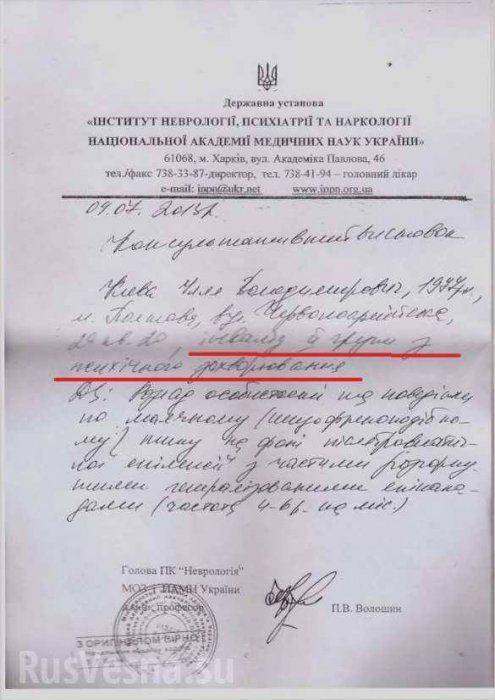 Державна установа
«ІНСТИТУТ НЕВРОЛОГІЇ, ПСИХІАТРІЇ ТА НАРКОЛОГІЇ
НАЦІОНАЛЬНОЇ АКАДЕМІЇ МЕДИЧНИХ НАУК УКРАЇНИ»
61068, м. Харків, вул. Академіка Павлова, 46
тел./факс 738-33-87-директор, тел. 738-41-94 – головний лікар
e-mail: inpn@ukr.net www.inpn.org.ua
09.07.2013р.
Консультативний висновок
Володимирович, 1977р.,
м. Полтава, вул.
інвалід групи з
психічного захворювання
Ds: Розлад особистості та поведінки
по (шизофреноподібно
му) типу на фоні
епілепсії з частими
генералізованими
(частота 4-6 р. на міс.)
Голова ПК "Неврологія"
МОЗ НАМН України
професор
П.В. Волошин
З ОРИГІНАЛОМ ВІРНО
RusVesna.su